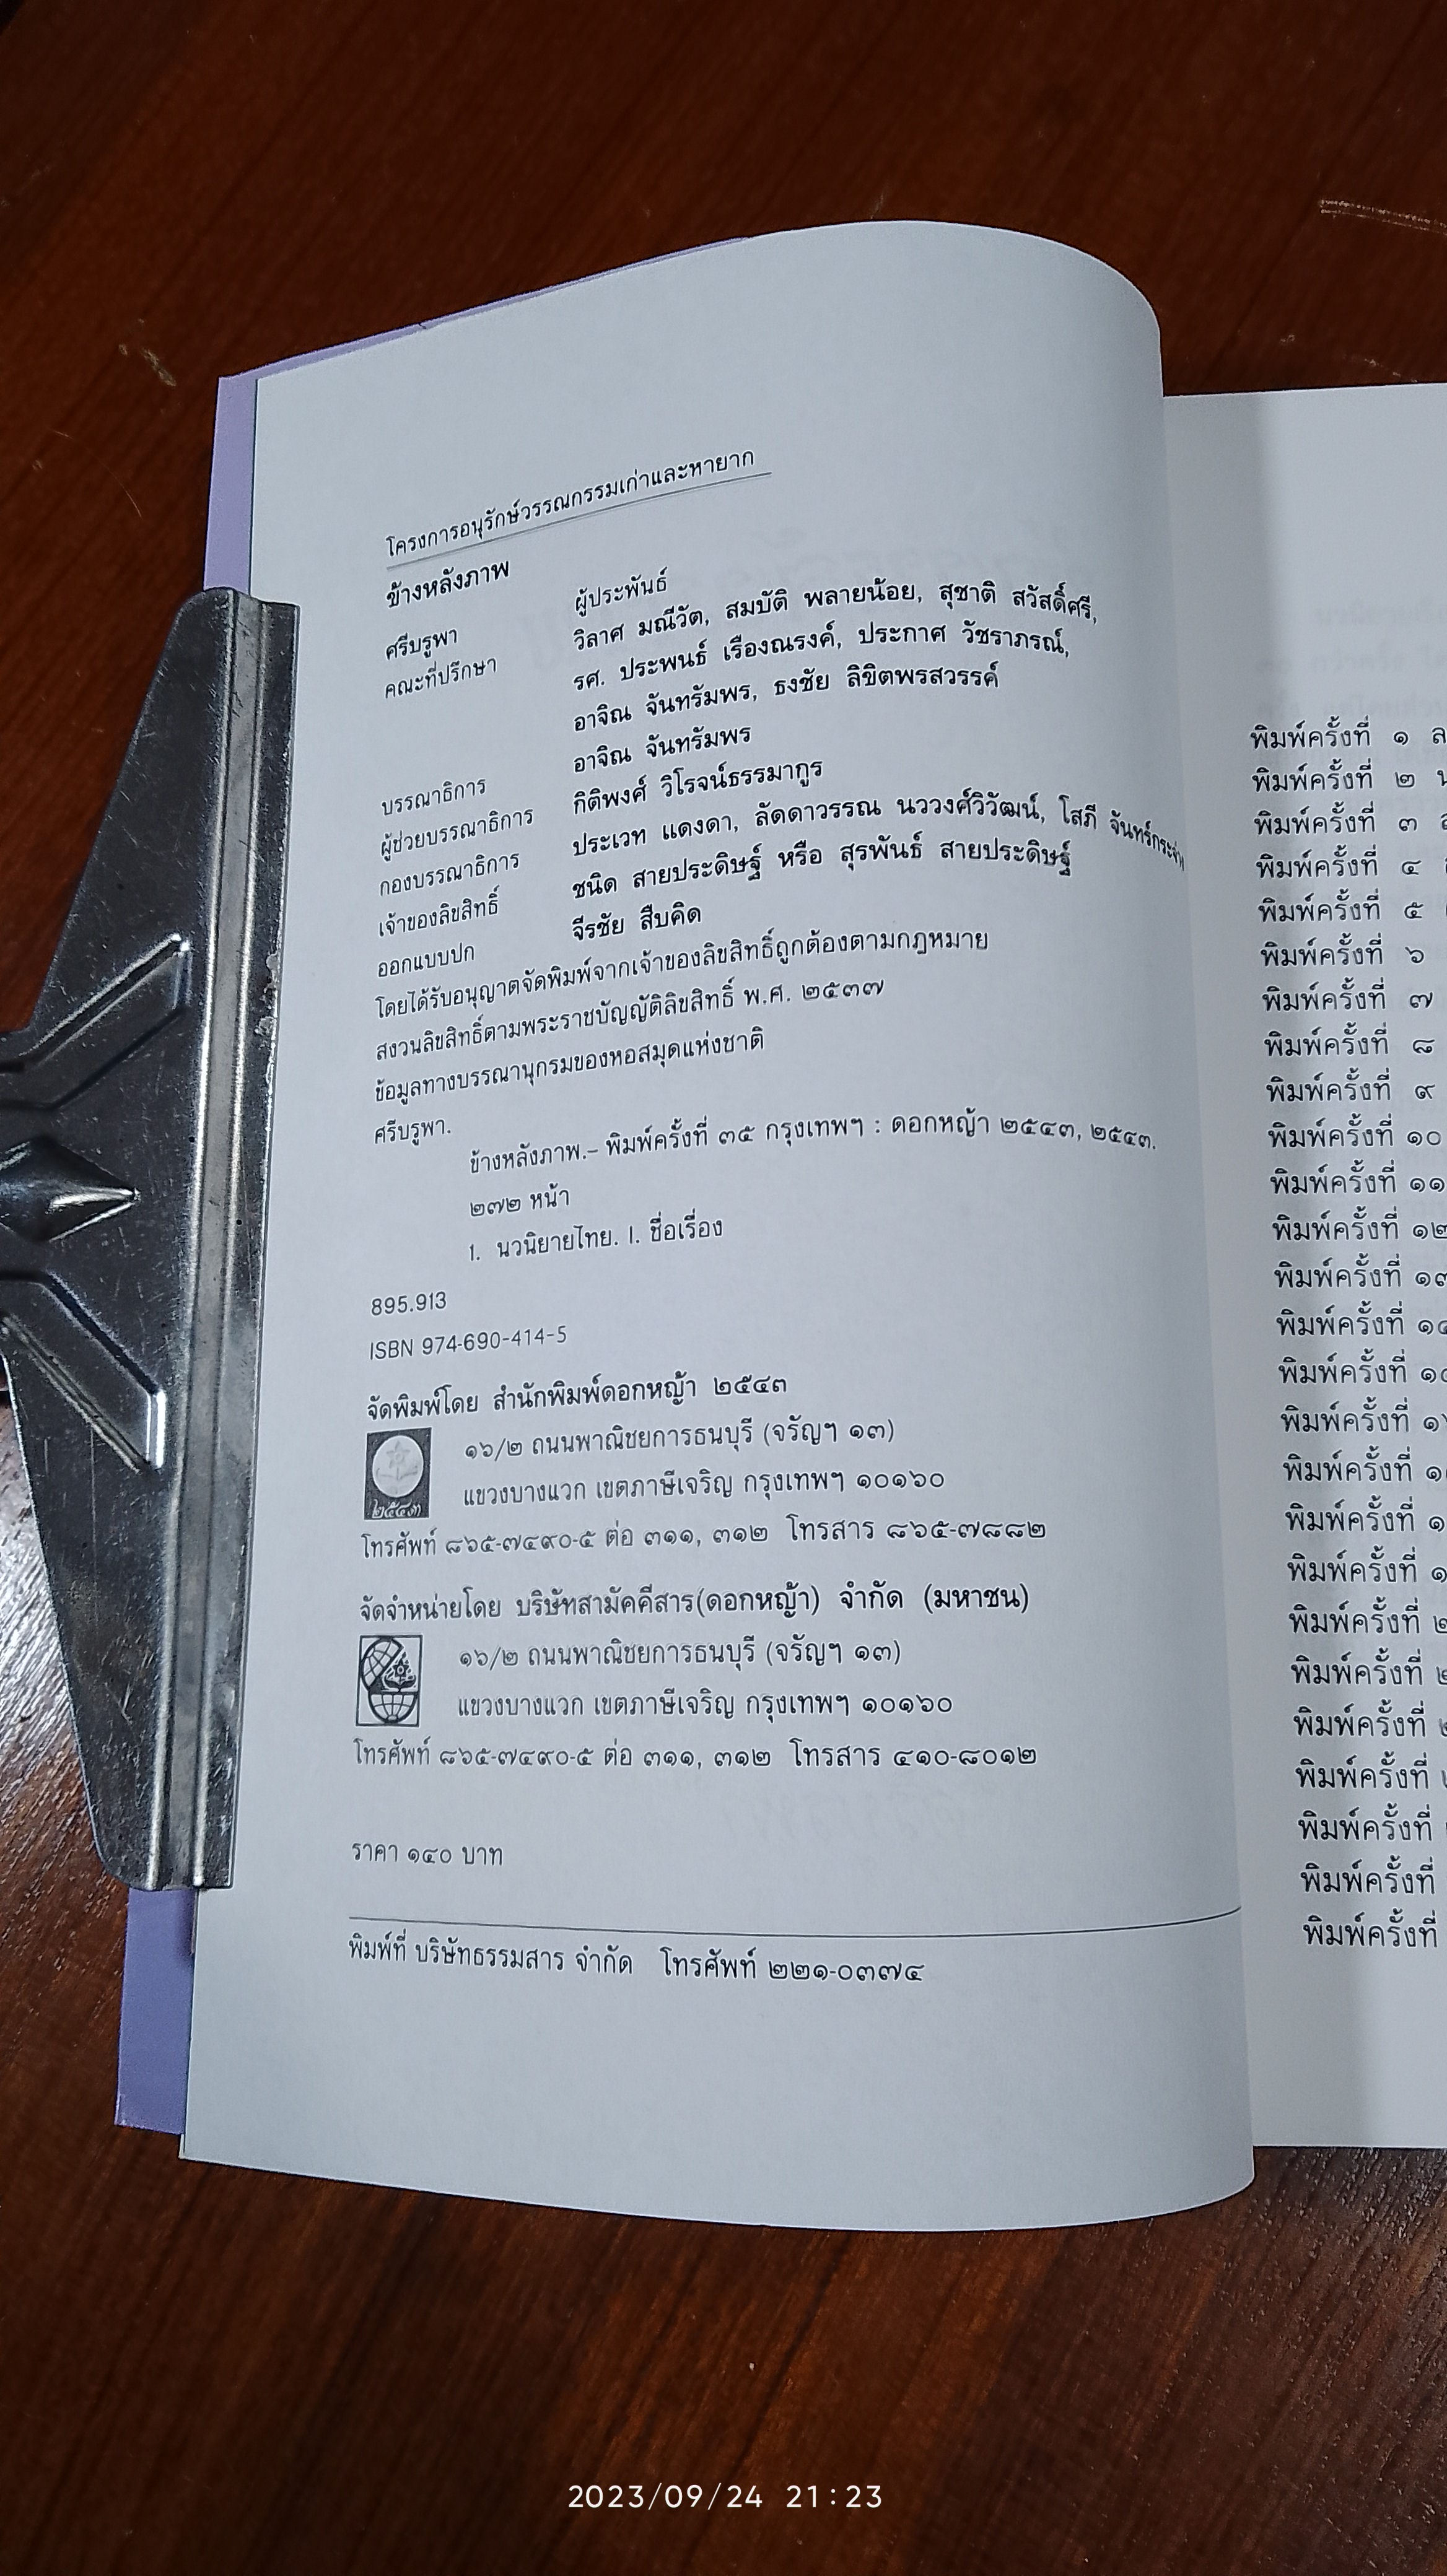 โครงการอนุรักษ์วรรณกรรมเก่าและหายาก
ข้างหลังภาพ
ศรีบรูพา ผู้ประพันธ์
คณะที่ปรึกษา วิลาศ มณีวัต, สมบัติ พลายน้อย, สุชาติ สวัสดิ์ศรี,
รศ. ประพนธ์ เรืองณรงค์, ประกาศ วัชราภรณ์,
อาจิณ จันทรัมพร, ธงชัย ลิขิตพรสวรรค์
บรรณาธิการ อาจิณ จันทรัมพร
ผู้ช่วยบรรณาธิการ กิติพงศ์ วิโรจน์ธรรมากูร
กองบรรณาธิการ ประเวท แดงดา, ลัดดาวรรณ นววงศ์วิวัฒน์, โสภี จันทร์กระจ่าง
เจ้าของลิขสิทธิ์ ชนิด สายประดิษฐ์ หรือ สุรพันธ์ สายประดิษฐ์
ออกแบบปก จีรชัย สืบคิด
โดยได้รับอนุญาตจัดพิมพ์จากเจ้าของลิขสิทธิ์ถูกต้องตามกฎหมาย
สงวนลิขสิทธิ์ตามพระราชบัญญัติลิขสิทธิ์ พ.ศ. ๒๕๓๗
ข้อมูลทางบรรณานุกรมของหอสมุดแห่งชาติ
ศรีบรูพา.
ข้างหลังภาพ.– พิมพ์ครั้งที่ ๓๕ กรุงเทพฯ : ดอกหญ้า ๒๕๔๓, ๒๕๔๓.
๒๗๒ หน้า
1. นวนิยายไทย. I. ชื่อเรื่อง
895.913
ISBN 974-690-414-5
จัดพิมพ์โดย สำนักพิมพ์ดอกหญ้า ๒๕๔๓
๑๖/๒ ถนนพาณิชยการธนบุรี (จรัญฯ ๑๓)
แขวงบางแวก เขตภาษีเจริญ กรุงเทพฯ ๑๐๑๖๐
๒๕๔๓
โทรศัพท์ ๘๖๕-๗๔๙๐-๕ ต่อ ๓๑๑, ๓๑๒ โทรสาร ๘๖๕-๗๘๘๒
จัดจำหน่ายโดย บริษัทสามัคคีสาร(ดอกหญ้า) จำกัด (มหาชน)
๑๖/๒ ถนนพาณิชยการธนบุรี (จรัญฯ ๑๓)
แขวงบางแวก เขตภาษีเจริญ กรุงเทพฯ ๑๐๑๖๐
โทรศัพท์ ๘๖๕-๗๔๙๐-๕ ต่อ ๓๑๑, ๓๑๒ โทรสาร ๔๑๐-๘๐๑๒
ราคา ๑๔๐ บาท
พิมพ์ที่ บริษัทธรรมสาร จำกัด โทรศัพท์ ๒๒๑-๐๓๗๔
พิมพ์ครั้งที่ ๑
พิมพ์ครั้งที่ ๒
พิมพ์ครั้งที่ ๓
พิมพ์ครั้งที่ ๔
พิมพ์ครั้งที่ ๕
พิมพ์ครั้งที่ ๖
พิมพ์ครั้งที่ ๗
พิมพ์ครั้งที่ ๘
พิมพ์ครั้งที่ ๙
พิมพ์ครั้งที่ ๑๐
พิมพ์ครั้งที่ ๑๑
พิมพ์ครั้งที่ ๑๒
พิมพ์ครั้งที่
พิมพ์ครั้งที่
พิมพ์ครั้งที่
พิมพ์ครั้งที่
พิมพ์ครั้งที่
พิมพ์ครั้งที่
พิมพ์ครั้งที่
พิมพ์ครั้งที่
พิมพ์ครั้งที่
พิมพ์ครั้งที่
พิมพ์ครั้งที่
พิมพ์ครั้งที่
พิมพ์ครั้งที่
พิมพ์ครั้งที่
2023/09/24 21:23